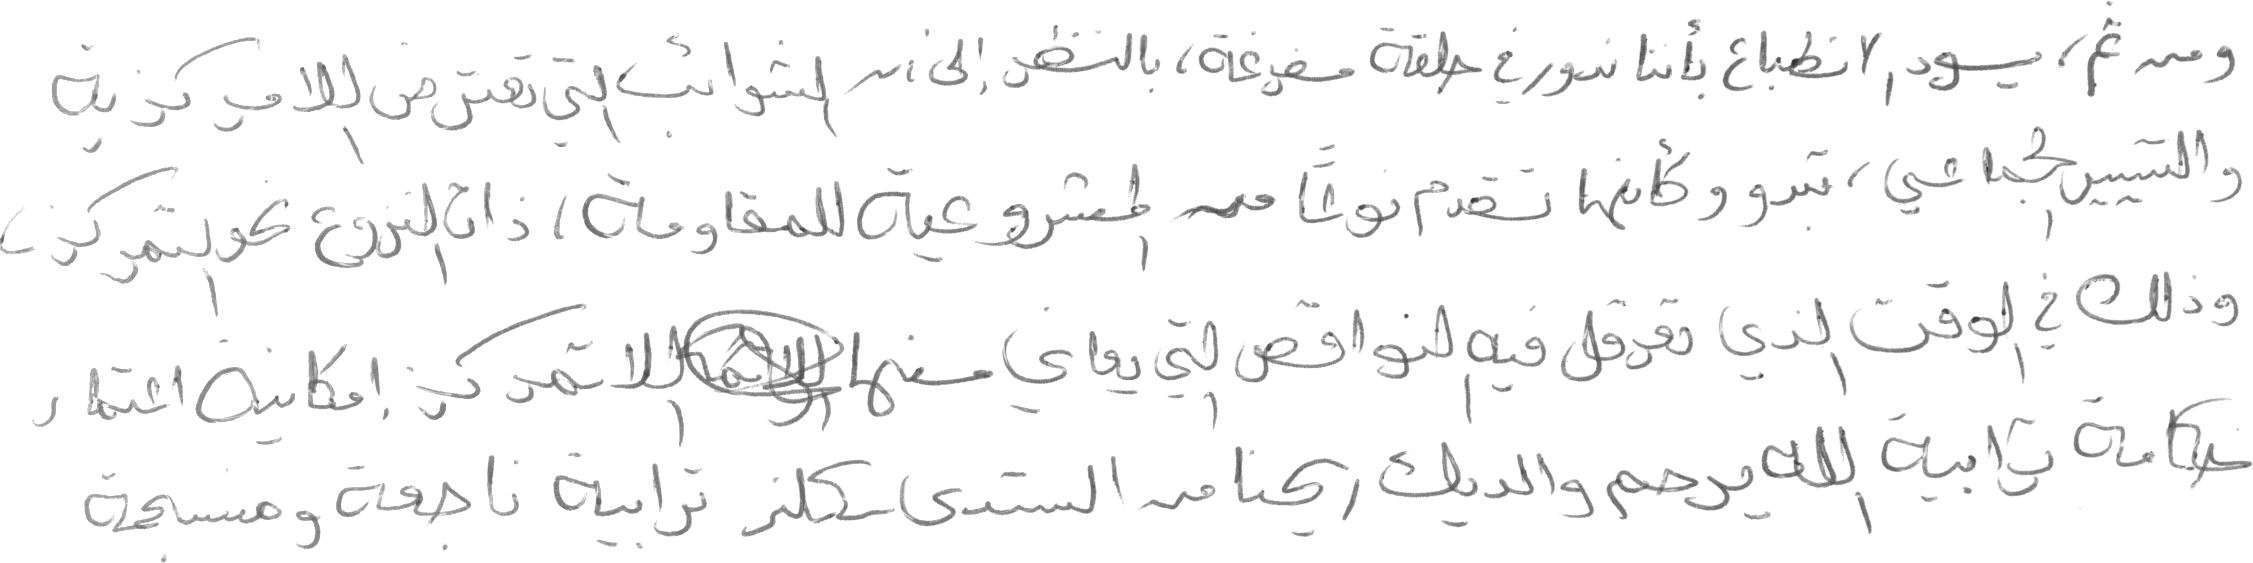 ومن ثم، يسود انطباع بأننا ندور في حلقة مفرغة، بالنظر إلى أن الشوائب التي تعترض اللامركزية
والتسيير الجماعي، تبدو وكأنها تقدم نوعًا من المشروعية للمقاومة، ذات النزوع نحو التمركز،
وذلك في الوقت الذي تعرقل فيه النواقص التي يعاني منها اللاتمركز إمكانية اعتماد
حكامة ترابية الله يرحم والديك ريحنا من الستدى ترابية ناجعة ومنسجمة